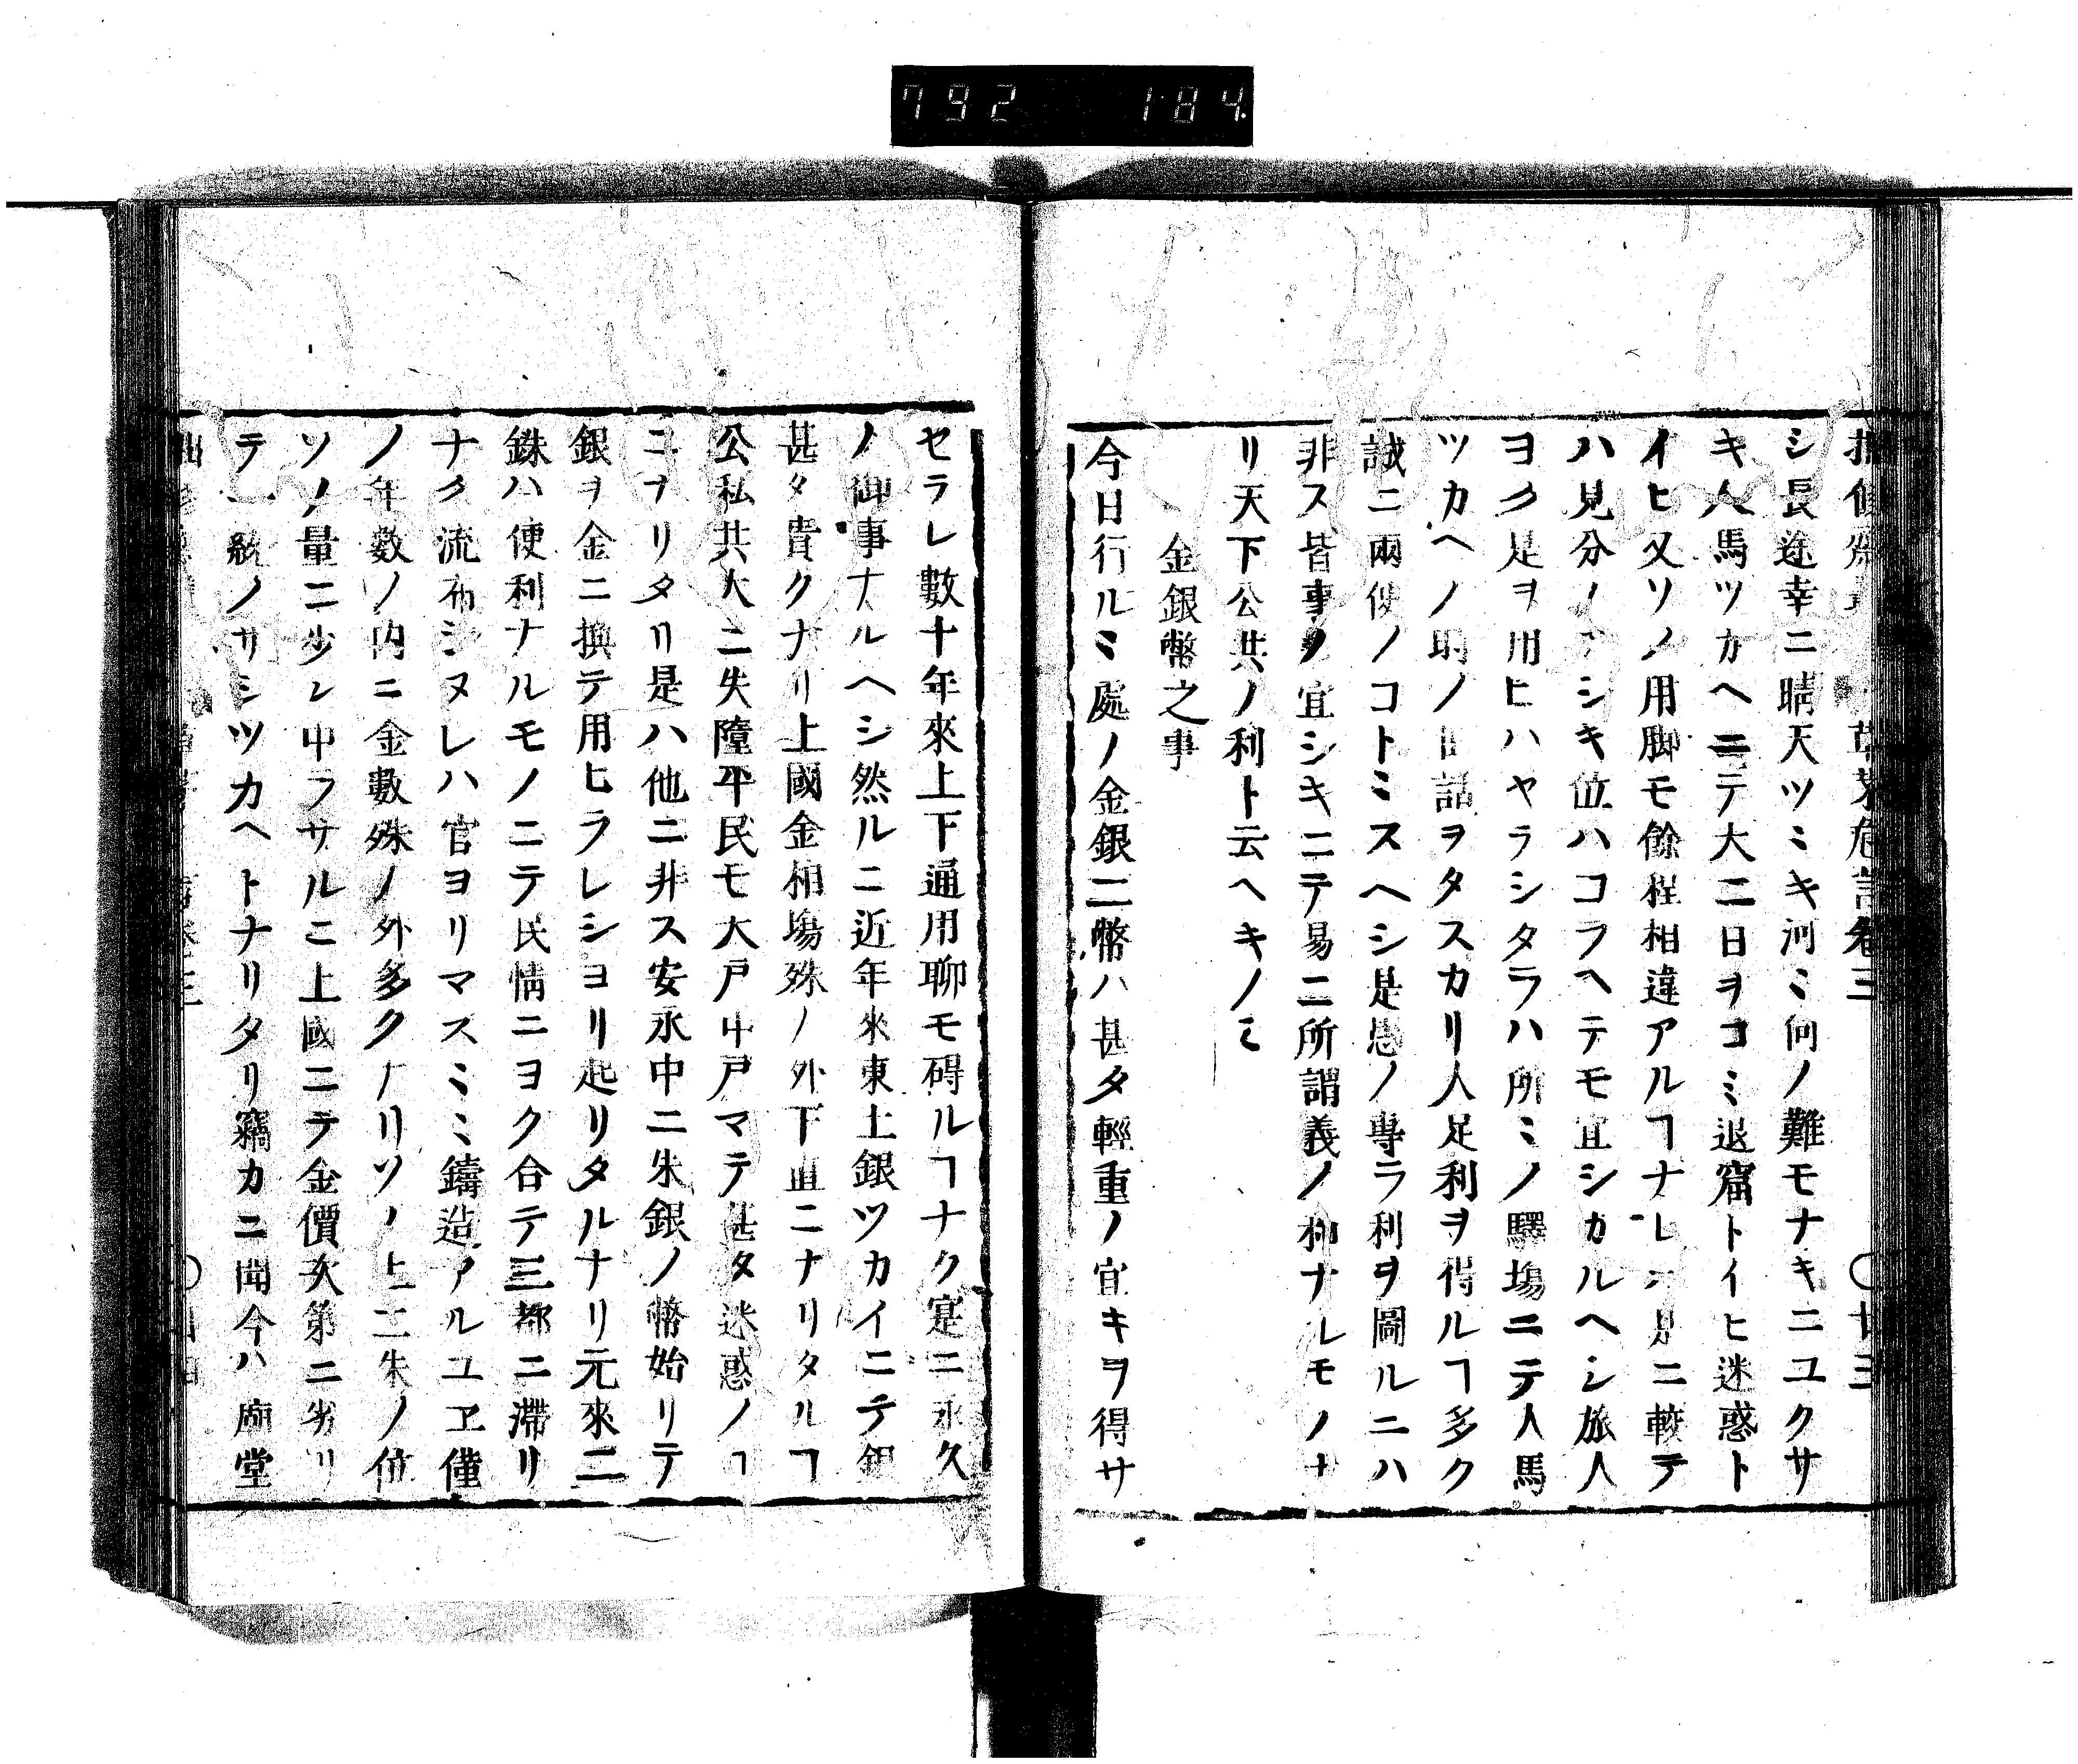 792 184
草茅危言卷三 〇廿三
シ長途幸ニ晴天ツヾキ河〻何ノ難モナキニユクサ
キ人馬ツカヘニテ大ニ日ヲコミ退窟トイヒ迷惑ト
イヒ又ソノ用脚モ餘程相違アルヿナレハ是ニ較テ
ハ見分ノアシキ位ハコラヘテモ宜シカルヘシ旅人
ヨク是ヲ用ヒハヤラシタラハ所〻ノ驛塲ニテ人馬
ツカヘノ明ノ世話ヲタスカリ人足利ヲ得ルヿ多ク
誠ニ兩便ノコトヽスヘシ是愚ノ專ラ利ヲ圖ルニハ
非ス皆事ノ宜シキニテ易ニ所謂義ノ和ナルモノナ
リ天下公共ノ利ト云ヘキノミ
金銀幣之事
今日行ルヽ處ノ金銀二幣ハ甚タ輕重ノ宜キヲ得サ
セラレ數十年來上下通用聊モ碍ルヿナク寔ニ永久
ノ御事ナルヘシ然ルニ近年來東土銀ツカイニテ銀
甚タ貴クナリ上國金相塲殊ノ外下直ニナリタルヿ
公私共大ニ失墮平民モ大戸中戸マテ甚タ迷惑ノヿ
ニナリタリ是ハ他ニ非ス安永中二朱銀ノ幣始リテ
銀ヲ金ニ換テ用ヒラレショリ起リタルナリ元來二
銖ハ便利ナルモノニテ民情ニヨク合テ三都ニ滯リ
ナク流布シヌレハ官ヨリマスヽヽ鑄造アルユヱ僅
ノ年數ノ内ニ金數殊ノ外多クナリソノ上二朱ノ位
ソノ量ニ少シ中フサルニ上國ニテ金價次第ニ劣リ
テ一統ノサシツカヘトナリタリ竊カニ聞今ハ廟堂